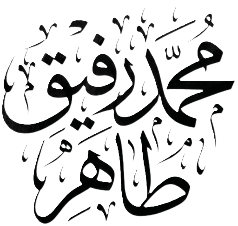 محمد رفیق
طاہر